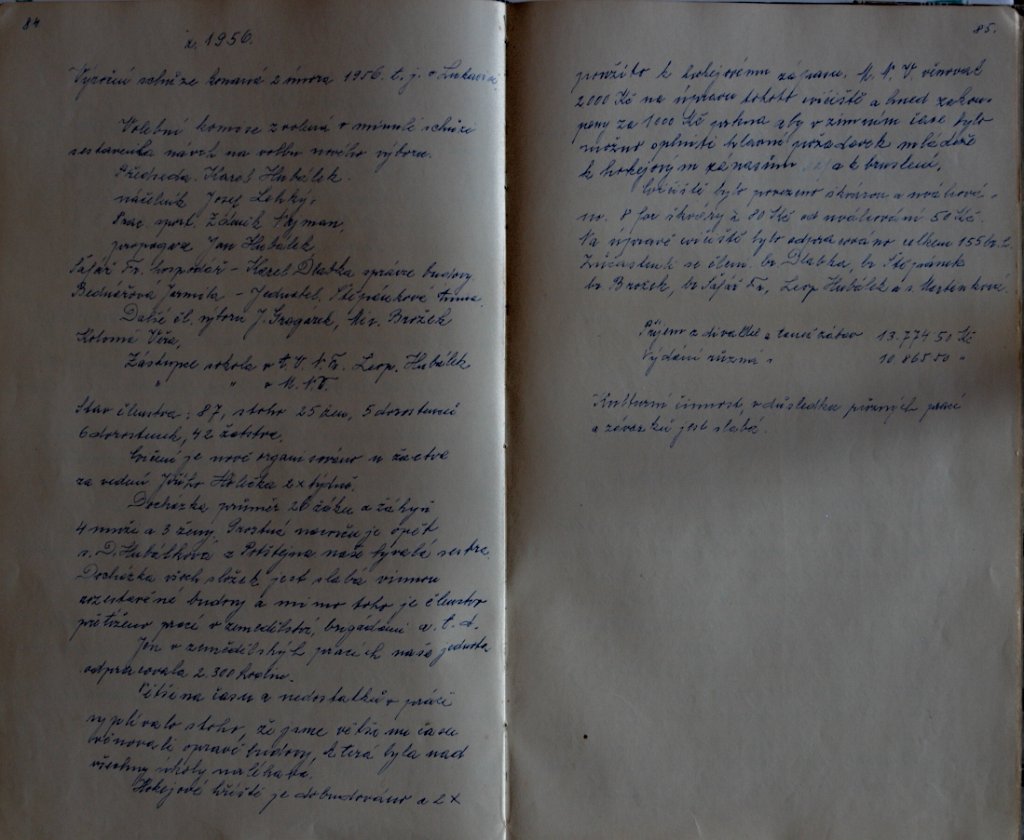 84
r. 1956.
Výroční schůze konaná 2 února 1956. t. j. o
Volební komise zvolená v minulé schůzi
sestavила návrh na volbu nového výboru.
Předseda. Karel Hubálek.
náčelník Josef Lehký,
Prac. sport. Zdeněk Vyman,
propagace Jan Hubálek
Šafář Fr. hospodář – Karel Dlabka správce budovy
Bednářová Jarmila – Jednatel. Štěpánková Anna,
Další čl. výboru J. Gregorek, Mir. Brožek
Kolomá Věra,
Zástupce sokola v A. V. N. F. Leop. Hubálek
" " v M. N. V.
Stav členstva: 87, stoho 25 žen, 5 dorostenců
6 dorostenek, 42 žactva.
Cvičení je nově organisováno u žactva
za vedení Jiřího Holečka 2x týdně.
Docházka průměr 20 žáků a žákyň
4 muži a 3 ženy. Prostná nacvičuje opět
s. D. Hubálková z Potštejna naše bývalá sestra.
Docházka všech složek jest slabá vinnou
rozestavěné budovy a mimo toho je členstvo
přetíženo prací v zemědělství, brigádami a. t. d.
Jen v zemědělských pracech naše jednota
odpracovala 2.300 hodin.
Většina času a nedostatků v práci
vyplívalo stoho, že jsme větší me čase
věnovali opravě budovy, která byla nad
všechny úkoly naléhavá.
Hokejové hřiště je dobudováno a 2x
85.
použito k hokejovému zápasu. M. N. V. věnoval
2000 Kč na úpravu tohoto cvičiště a hned zakou-
peny za 1000 Kč prkna aby v zimním čase bylo
možno splniti hlavní požadavek mládeže
k hokejovým zápasům a k bruslení.
Cvičiště bylo povezeno škvárou a uválcová-
no. 8 for škváry à 80 Kč od uválcování 50 Kč.
Na úpravě cvičiště bylo odpracováno celkem 155 br. h.
Zúčastnili se členi br. Dlabka, br. Štěpánek
br. Brožek, br. Šafář Fr., Leop Hubálek a s. Martinková
Příjem z divadel a tanč. zábav 13.774.50 Kč
Výdání různá 10.865.50 "
Kulturní činnost, v důsledku pracích
a závazků jest slabá.